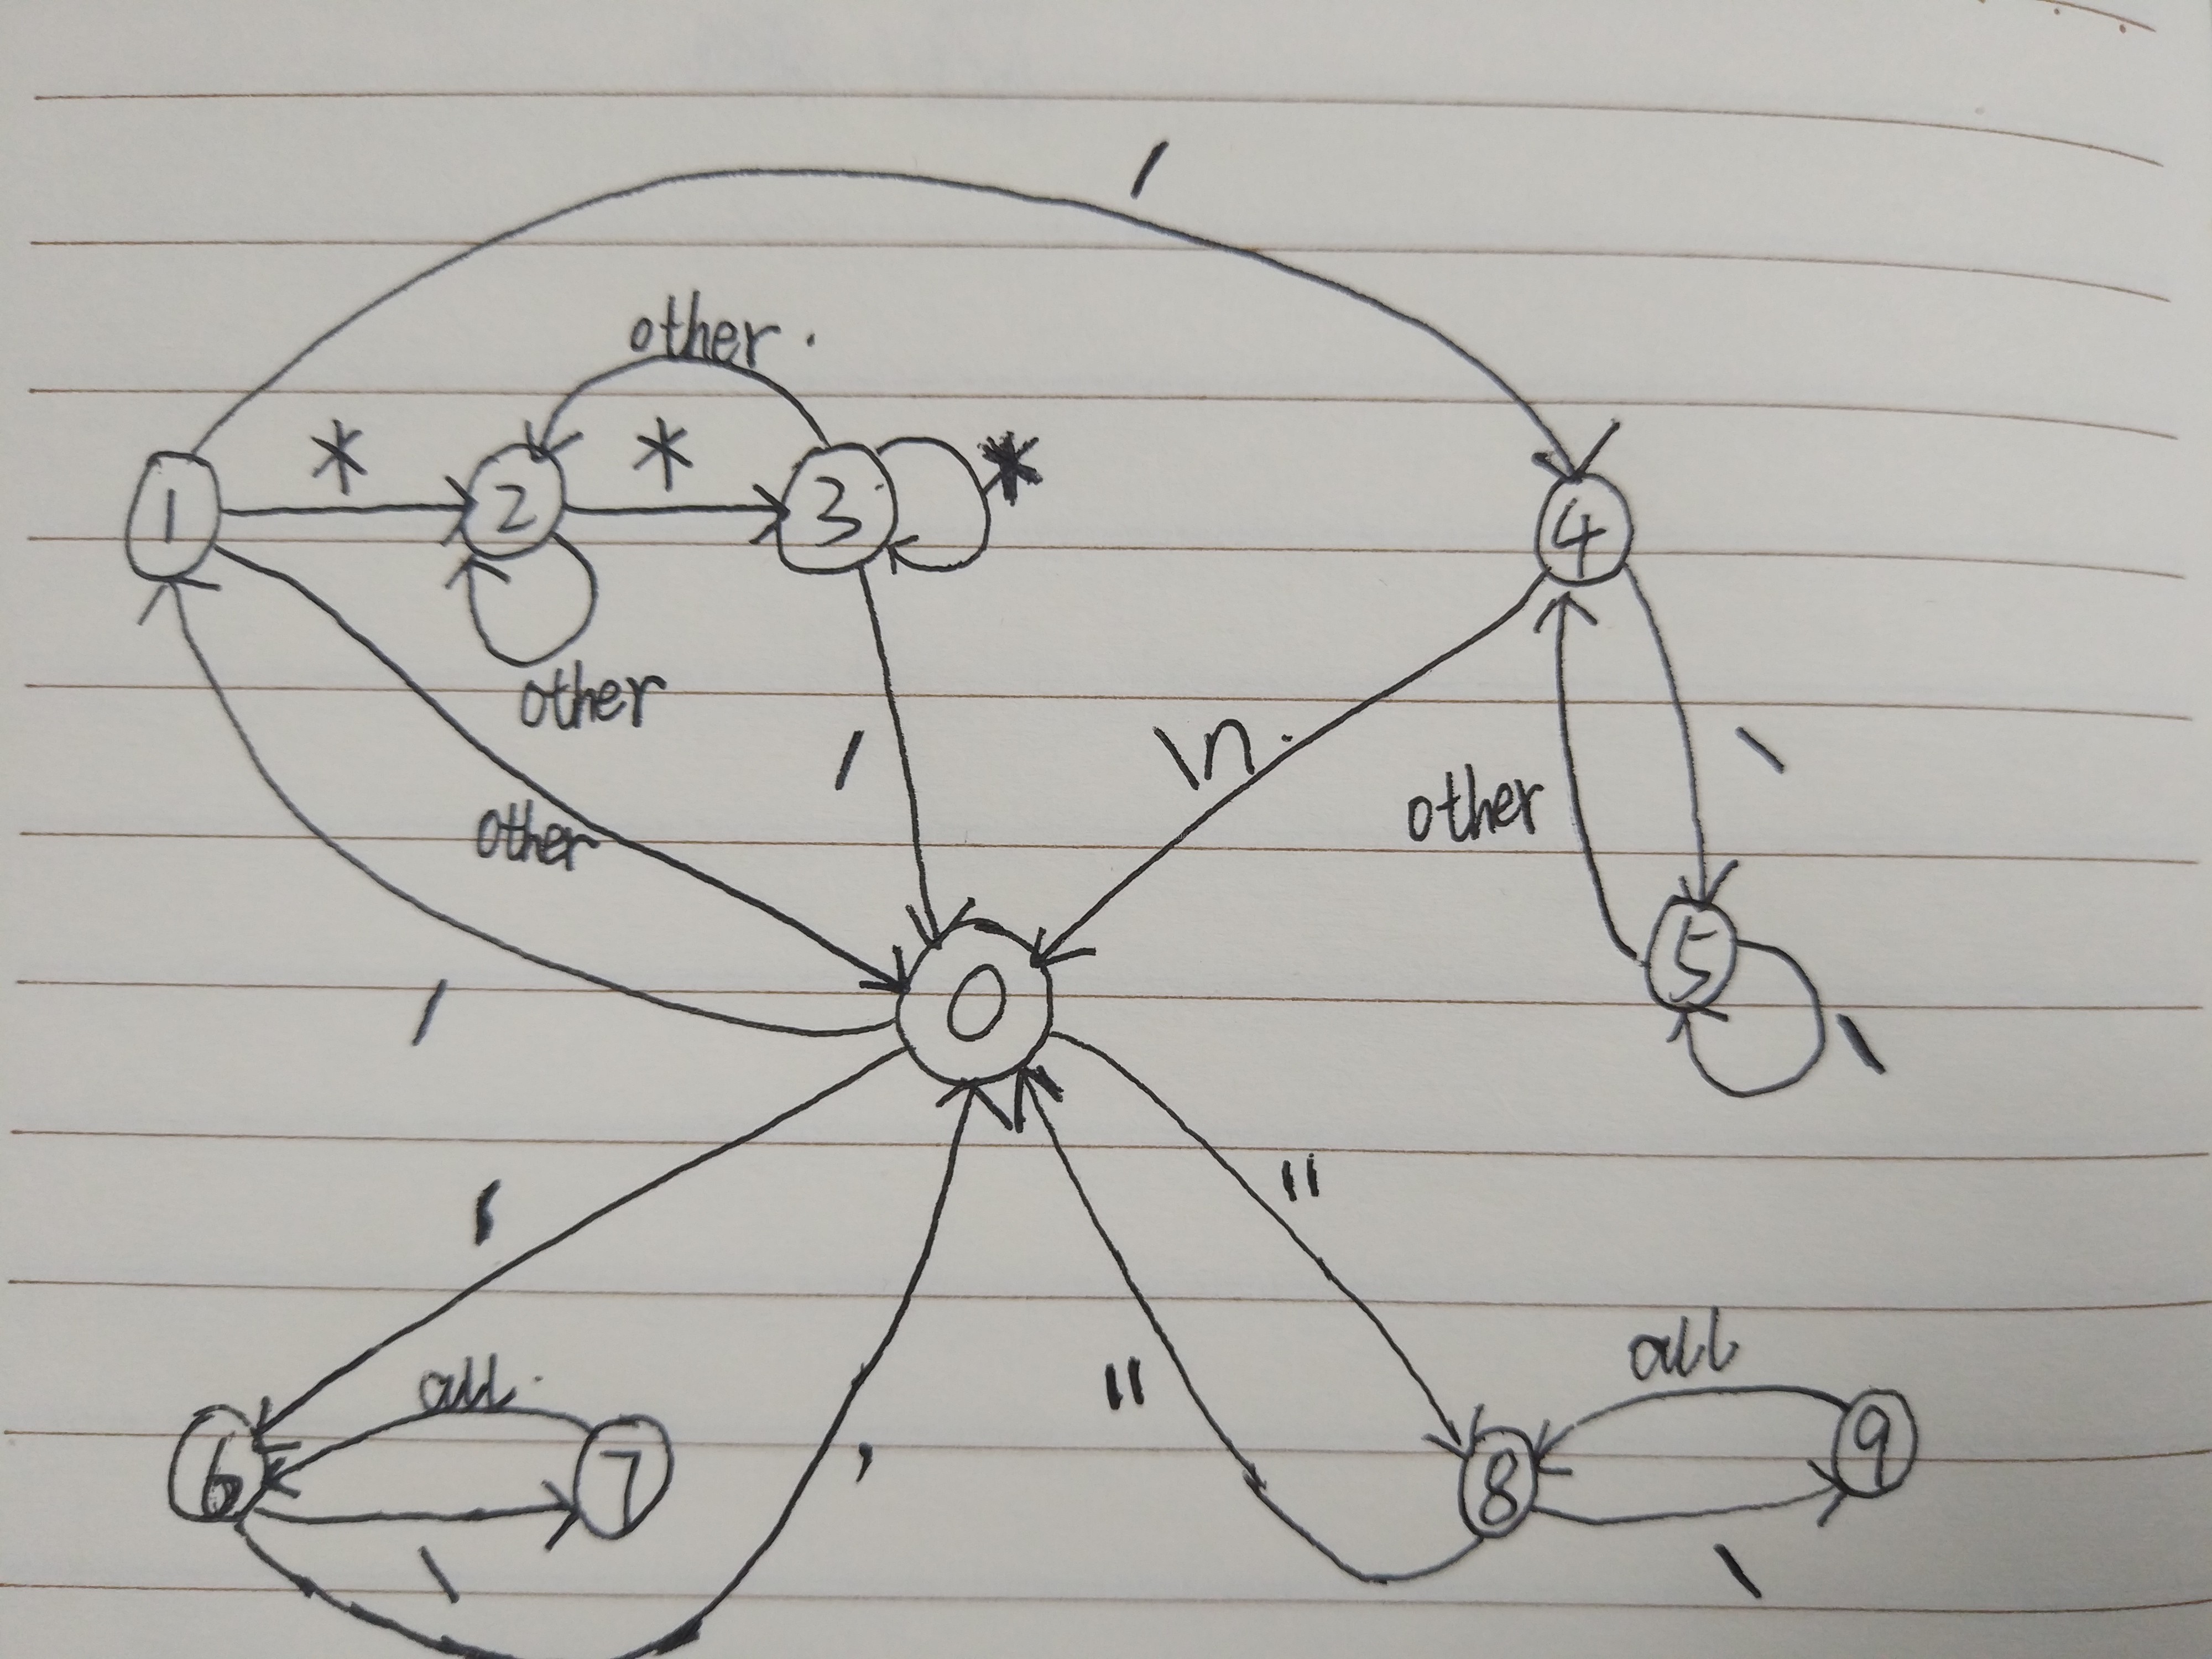 /
other
* * *
1 2 3 4
other
/ \n \
other other
0 5
/ \
' "
all
all " 9
6 7 ' 8
\ \